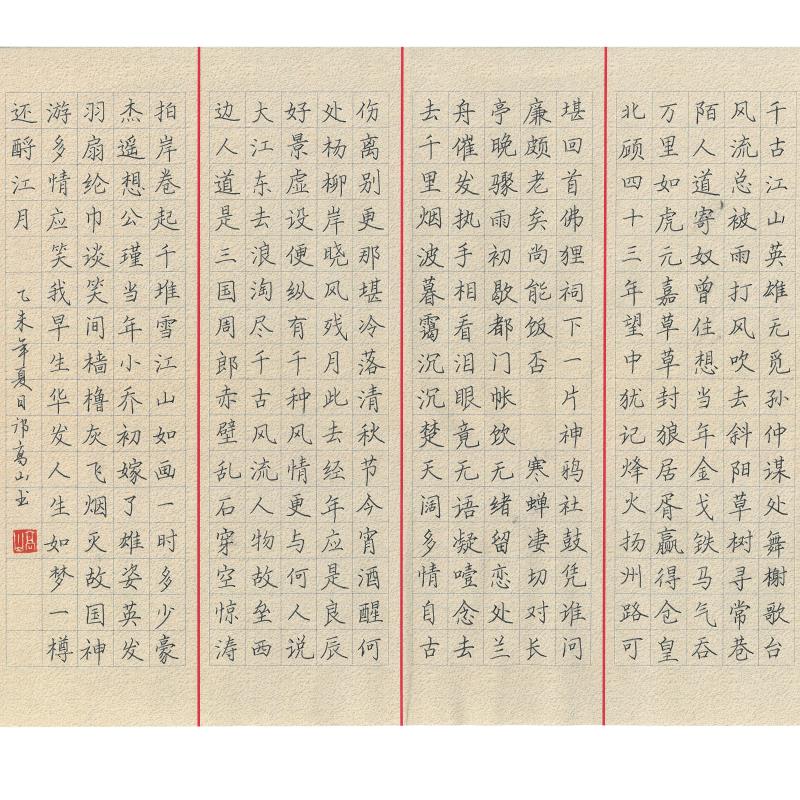 千古江山英雄无觅孙仲谋处舞榭歌台
风流总被雨打风吹去斜阳草树寻常巷
陌人道寄奴曾住想当年金戈铁马气吞
万里如虎元嘉草草封狼居胥赢得仓皇
北顾四十三年望中犹记烽火扬州路可
堪回首佛狸祠下一片神鸦社鼓凭谁问
廉颇老矣尚能饭否 寒蝉凄切对长
亭晚骤雨初歇都门帐饮无绪留恋处兰
舟催发执手相看泪眼竟无语凝噎念去
去千里烟波暮霭沉沉楚天阔多情自古
伤离别更那堪冷落清秋节今宵酒醒何
处杨柳岸晓风残月此去经年应是良辰
好景虚设便纵有千种风情更与何人说
大江东去浪淘尽千古风流人物故垒西
边人道是三国周郎赤壁乱石穿空惊涛
拍岸卷起千堆雪江山如画一时多少豪
杰遥想公瑾当年小乔初嫁了雄姿英发
羽扇纶巾谈笑间樯橹灰飞烟灭故国神
游多情应笑我早生华发人生如梦一樽
还酹江月 乙未年夏日高山书